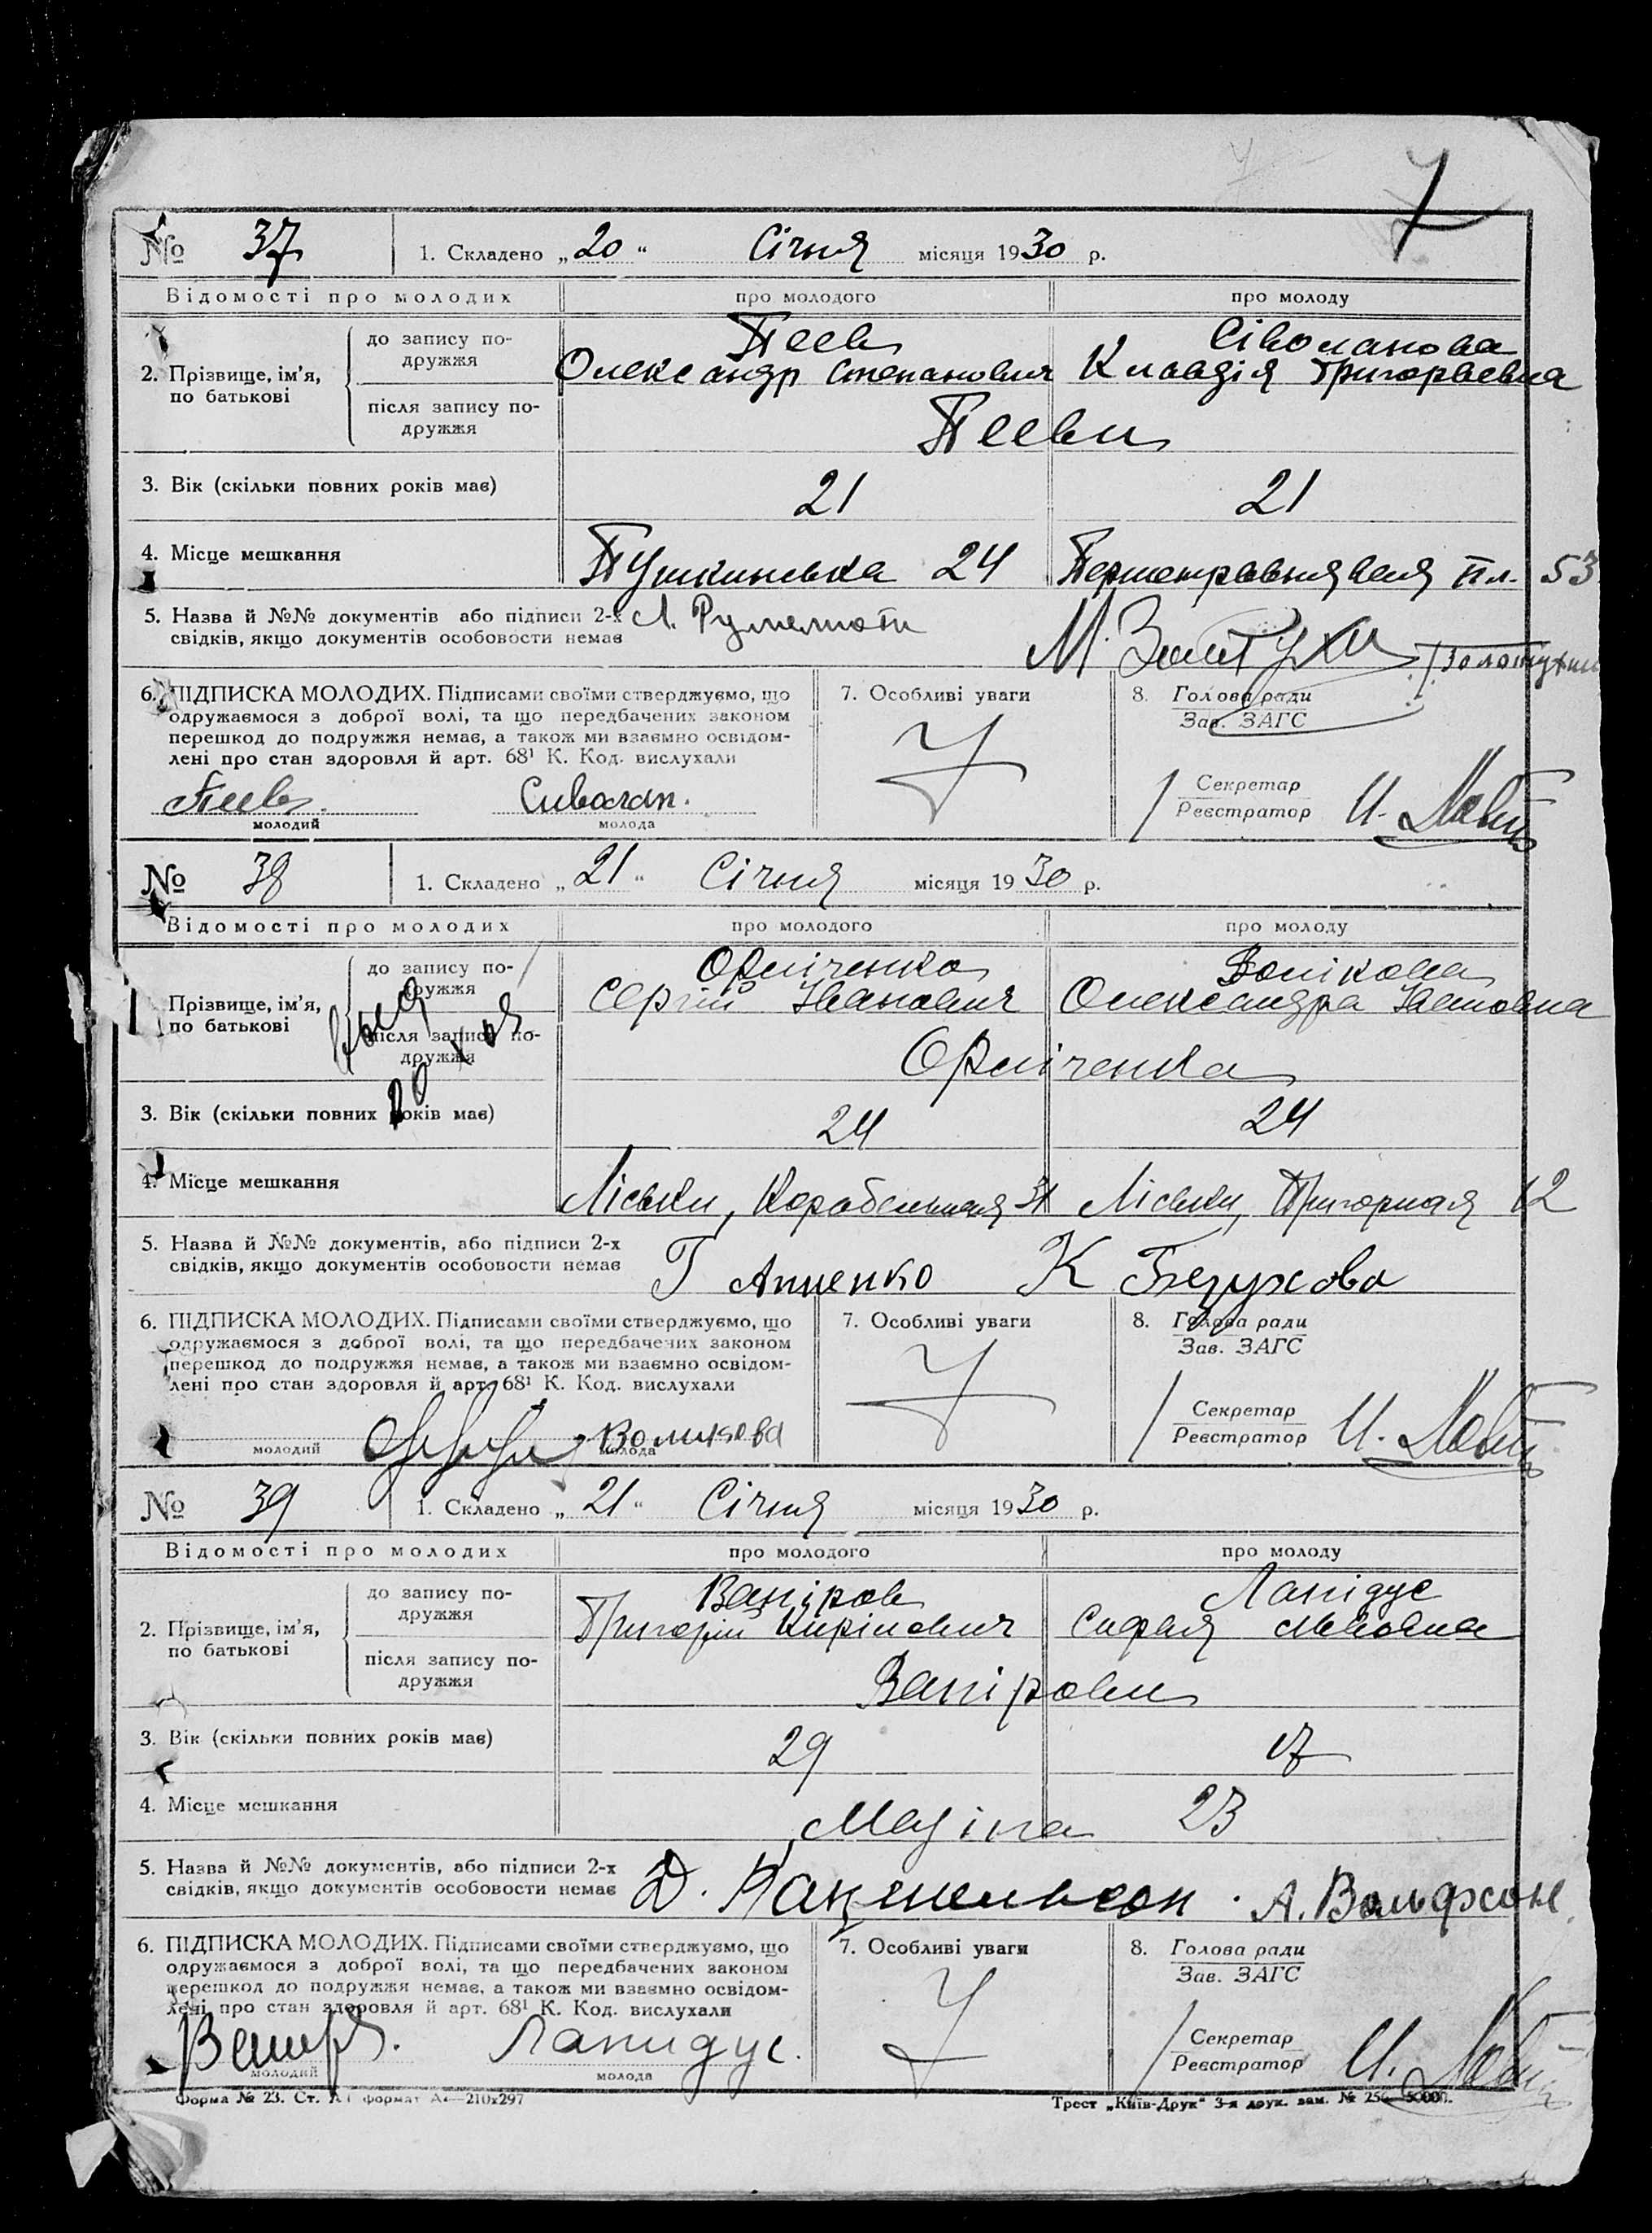 7
№ 37 1. Складено „20“ Січня місяця 1930 р.
Відомості про молодих про молодого про молоду
2. Прізвище, ім’я, по батькові
до запису подружжя
Пеев
Олександр Степанович Клавдія Григорьевна
після запису подружжя
Пееви
3. Вік (скільки повних років має) 21 21
4. Місце мешкання Пушкинська 24 пл. 53
5. Назва й №№ документів або підписи 2-х
свідків, якщо документів особовости немає
6. ПІДПИСКА МОЛОДИХ. Підписами своїми стверджуємо, що
одружаємося з доброї волі, та що передбачених законом
перешкод до подружжя немає, а також ми взаємно освідом-
лені про стан здоровля й арт. 68¹ К. Код. вислухали
молодий молода
7. Особливі уваги
8. Голова ради
Зав. ЗАГС
Секретар
Реєстратор И.
№ 38 1. Складено „21“ Січня місяця 1930 р.
Відомості про молодих про молодого про молоду
Прізвище, ім’я, по батькові
до запису подружжя
Волікова
Сергій Іванович Олександра
після запису подружжя
3. Вік (скільки повних років має) 24 24
4. Місце мешкання Ліськи, Корабельная Ліськи, 12
5. Назва й №№ документів, або підписи 2-х
свідків, якщо документів особовости немає
Г К Безухова
6. ПІДПИСКА МОЛОДИХ. Підписами своїми стверджуємо, що
одружаємося з доброї волі, та що передбачених законом
перешкод до подружжя немає, а також ми взаємно освідом-
лені про стан здоровля й арт. 68¹ К. Код. вислухали
молодий Воликова молода
7. Особливі уваги
8. Голова ради
Зав. ЗАГС
Секретар
Реєстратор И.
№ 39 1. Складено „21“ Січня місяця 1930 р.
Відомості про молодих про молодого про молоду
2. Прізвище, ім’я, по батькові
до запису подружжя
Ваніров Лапідус
Григорій Кирілович Софья
після запису подружжя
3. Вік (скільки повних років має) 29 17
4. Місце мешкання 23
5. Назва й №№ документів, або підписи 2-х
свідків, якщо документів особовости немає
Д. А. Вольфсон
6. ПІДПИСКА МОЛОДИХ. Підписами своїми стверджуємо, що
одружаємося з доброї волі, та що передбачених законом
перешкод до подружжя немає, а також ми взаємно освідом-
лені про стан здоровля й арт. 68¹ К. Код. вислухали
Лапидус.
молодий молода
7. Особливі уваги
8. Голова ради
Зав. ЗАГС
Секретар
Реєстратор И.
Форма № 23. Ст. формат А4—210х297 Трест „Київ-Друк“ 3-я друк. зам. №